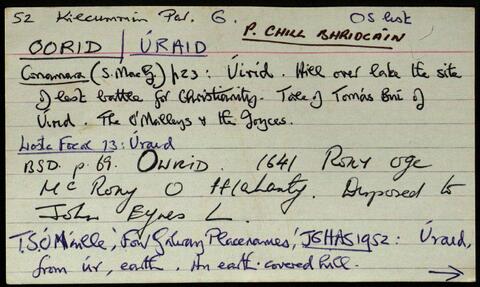 52 Kilcummin Par. G. OS list
P. CHILL BHRIOCÁIN
OORID / ÚRAID
Conamara (S. Mac G) p23: Úirid. Hill over lake the site
of last battle for Christianity. Tale of Tomás Buí of
Úirid. The O'Malleys & the Joyces.
Liosta Focal 13: Úraid
BSD. p. 69. OWRID. 1641 Rory oge
Mc Rory O fflaherty. Disposed to
John Eyres L.
T.S. Ó Máille, 'Four Galway Placenames,' JGHAS 1952: Úraid,
from úr, earth. An earth-covered hill.
→